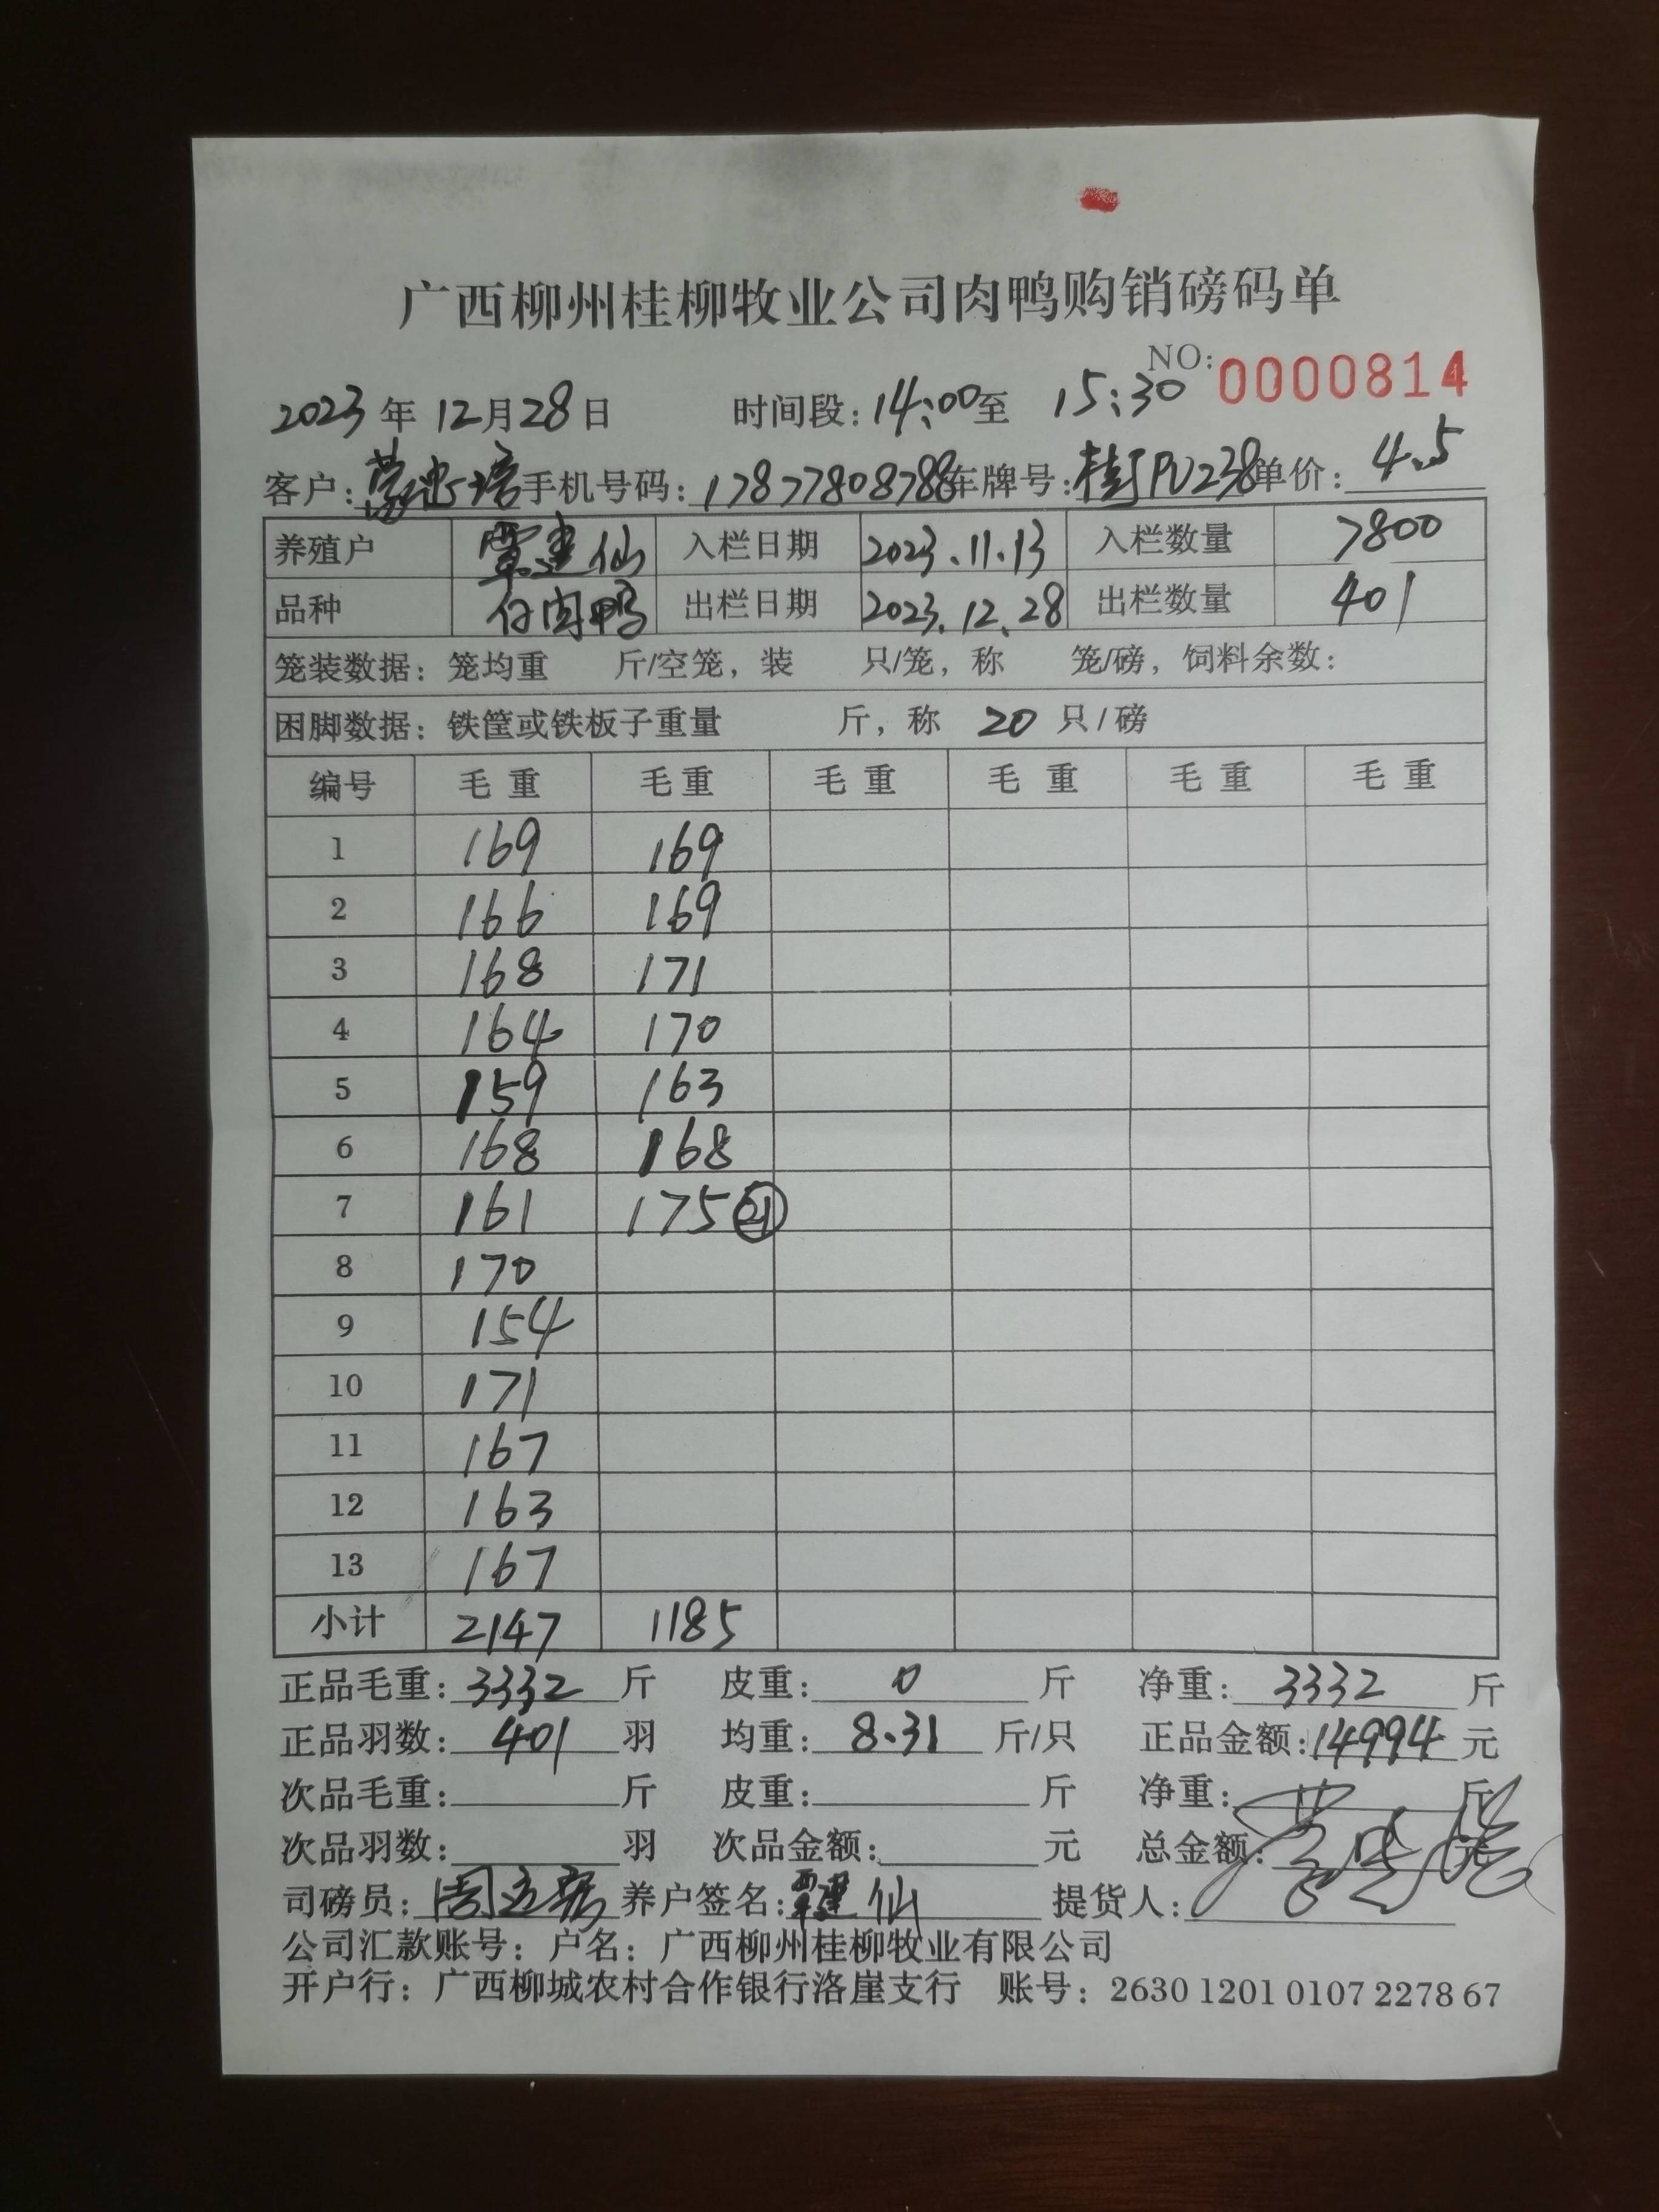 广西柳州桂柳牧业公司肉鸭购销磅码单
NO:0000814
2023年12月28日 时间段:14:00至 15:30
客户: 手机号码:17877808788车牌号:桂 单价:4.5
养殖户 覃建仙 入栏日期 2023.11.13 入栏数量 7800
品种 仔肉鸭 出栏日期 2023.12.28 出栏数量 401
笼装数据:笼均重 斤/空笼,装 只/笼,称 笼/磅,饲料余数:
困脚数据:铁筐或铁板子重量 斤,称 20 只/磅
编号 毛重 毛重 毛重 毛重 毛重 毛重
1 169 169
2 166 169
3 168 171
4 164 170
5 159 163
6 168 168
7 161 175 21
8 170
9 154
10 171
11 167
12 163
13 167
小计 2147 1185
正品毛重:3332斤 皮重:0斤 净重:3332斤
正品羽数:401羽 均重:8.31斤/只 正品金额:14994元
次品毛重: 斤 皮重: 斤 净重: 斤
次品羽数: 羽 次品金额: 元 总金额:
司磅员: 养户签名:覃建仙 提货人:
公司汇款账号:户名:广西柳州桂柳牧业有限公司
开户行:广西柳城农村合作银行洛崖支行 账号:2630 1201 0107 2278 67